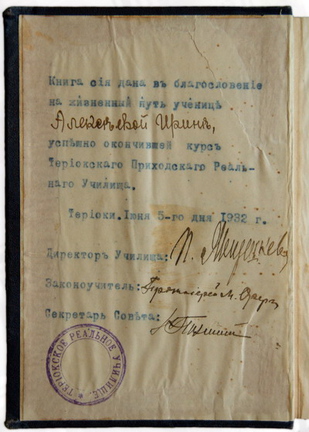 Книга сія дана въ благословеніе
на жизненный путь ученицѣ
Алексѣевой Иринѣ,
успѣшно окончившей курсъ
Теріокскаго Приходскаго Реаль-
наго Училища.
Теріоки. Іюня 5-го дня 1932 г.
Директоръ Училища: П.
Законоучитель: Протоіерей М.
Секретарь Совѣта:
ТЕРІОКСКОЕ РЕАЛЬНОЕ УЧИЛИЩЕ